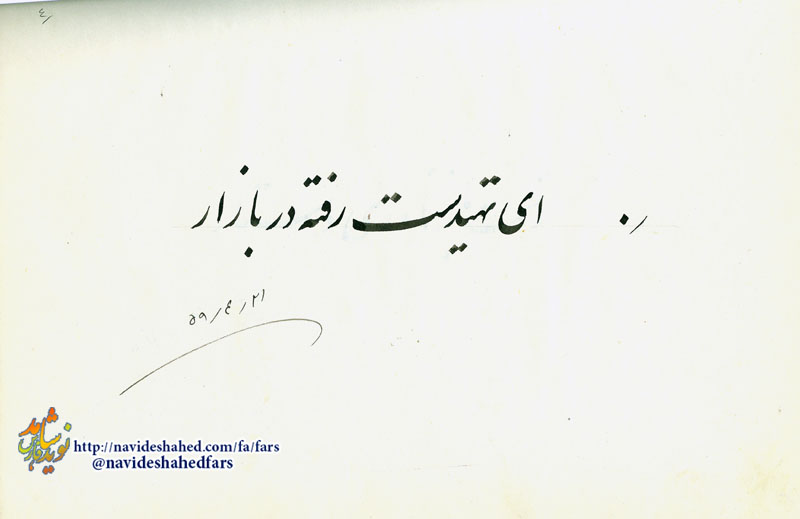 ٤/
ای تهیدست رفته در بازار
٥٩/٤/٢١
نوید شاهد
فارس
http://navideshahed.com/fa/fars
@navideshahedfars